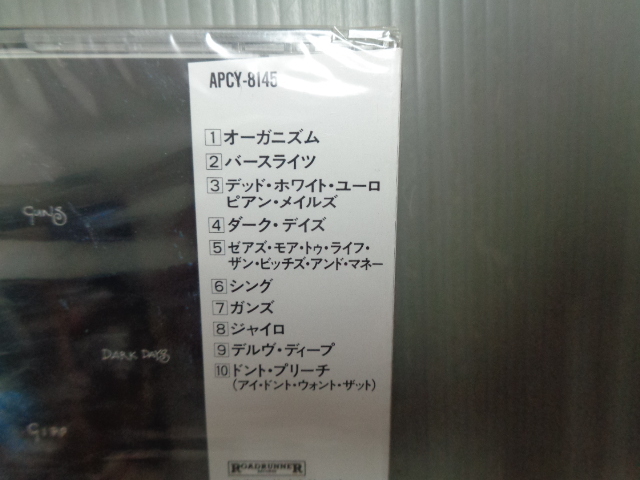 APCY-8145
1 オーガニズム
2 バースライツ
3 デッド・ホワイト・ユーロ
ピアン・メイルズ
4 ダーク・デイズ
5 ゼアズ・モア・トゥ・ライフ・
ザン・ビッチズ・アンド・マネー
6 シング
7 ガンズ
8 ジャイロ
9 デルヴ・ディープ
10 ドント・プリーチ
(アイ・ドント・ウォント・ザット)
ROADRUNNER
GUNS
DARK DAYS